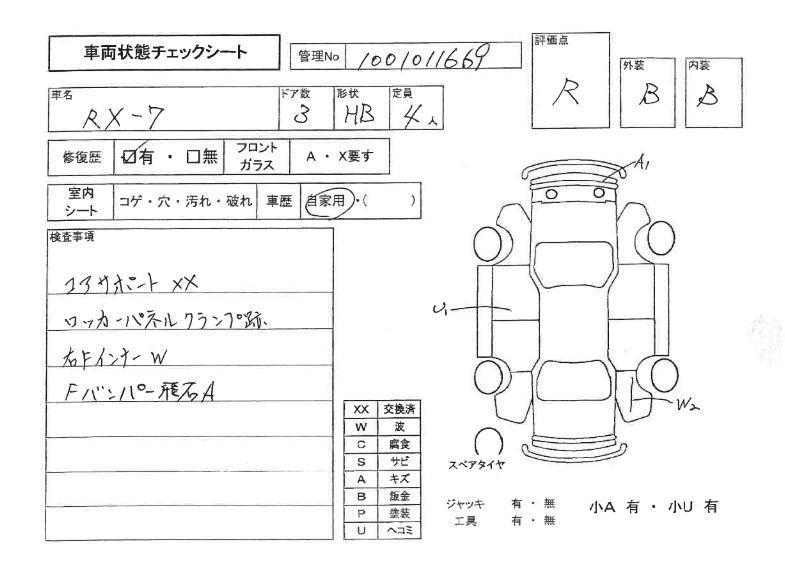 車両状態チェックシート
管理No 1001011669
評価点 R
外装 B
内装 B
車名 RX-7
ドア数 3
形状 HB
定員 4人
修復歴 ☑有・□無
フロントガラス A・X要す
室内シート コゲ・穴・汚れ・破れ
車歴 自家用・( )
検査事項
コアサポート XX
ロッカーパネルクランプ跡
右Fインナー W
Fバンパー飛石A
A1
U1
W2
XX 交換済
W 波
C 腐食
S サビ
A キズ
B 鈑金
P 塗装
U ヘコミ
スペアタイヤ
ジャッキ 有・無
工具 有・無
小A 有・小U 有